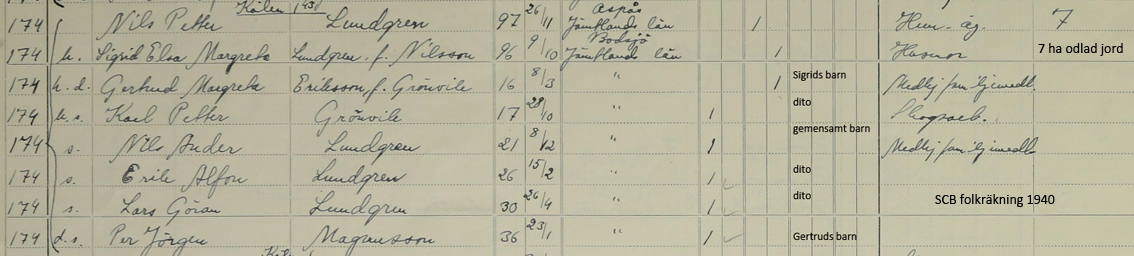 Kölen 1 43
174 Nils Petter Lundgren 97 26/11 Aspås Jämtlands län 1 Hem. äg. 7
174 h. Sigrid Elsa Margreta Lundgren f. Nilsson 96 9/10 Bodsjö Jämtlands län 1 Husmor 7 ha odlad jord
174 h. d. Gertrud Margreta Eriksson f. Grönvile 16 8/3 " 1 Sigrids barn Medhj fam iljemedl.
174 h. s. Karl Petter Grönvile 17 28/10 " 1 dito Skogsarb.
174 s. Nils Ander Lundgren 21 8/12 " 1 gemensamt barn Medhj fam iljemedl
174 s. Erik Alfon Lundgren 26 15/2 " 1 dito
174 s. Lars Göran Lundgren 30 26/4 " 1 dito SCB folkräkning 1940
174 d. s. Per Jörgen Magnusson 36 23/1 " 1 Gertruds barn